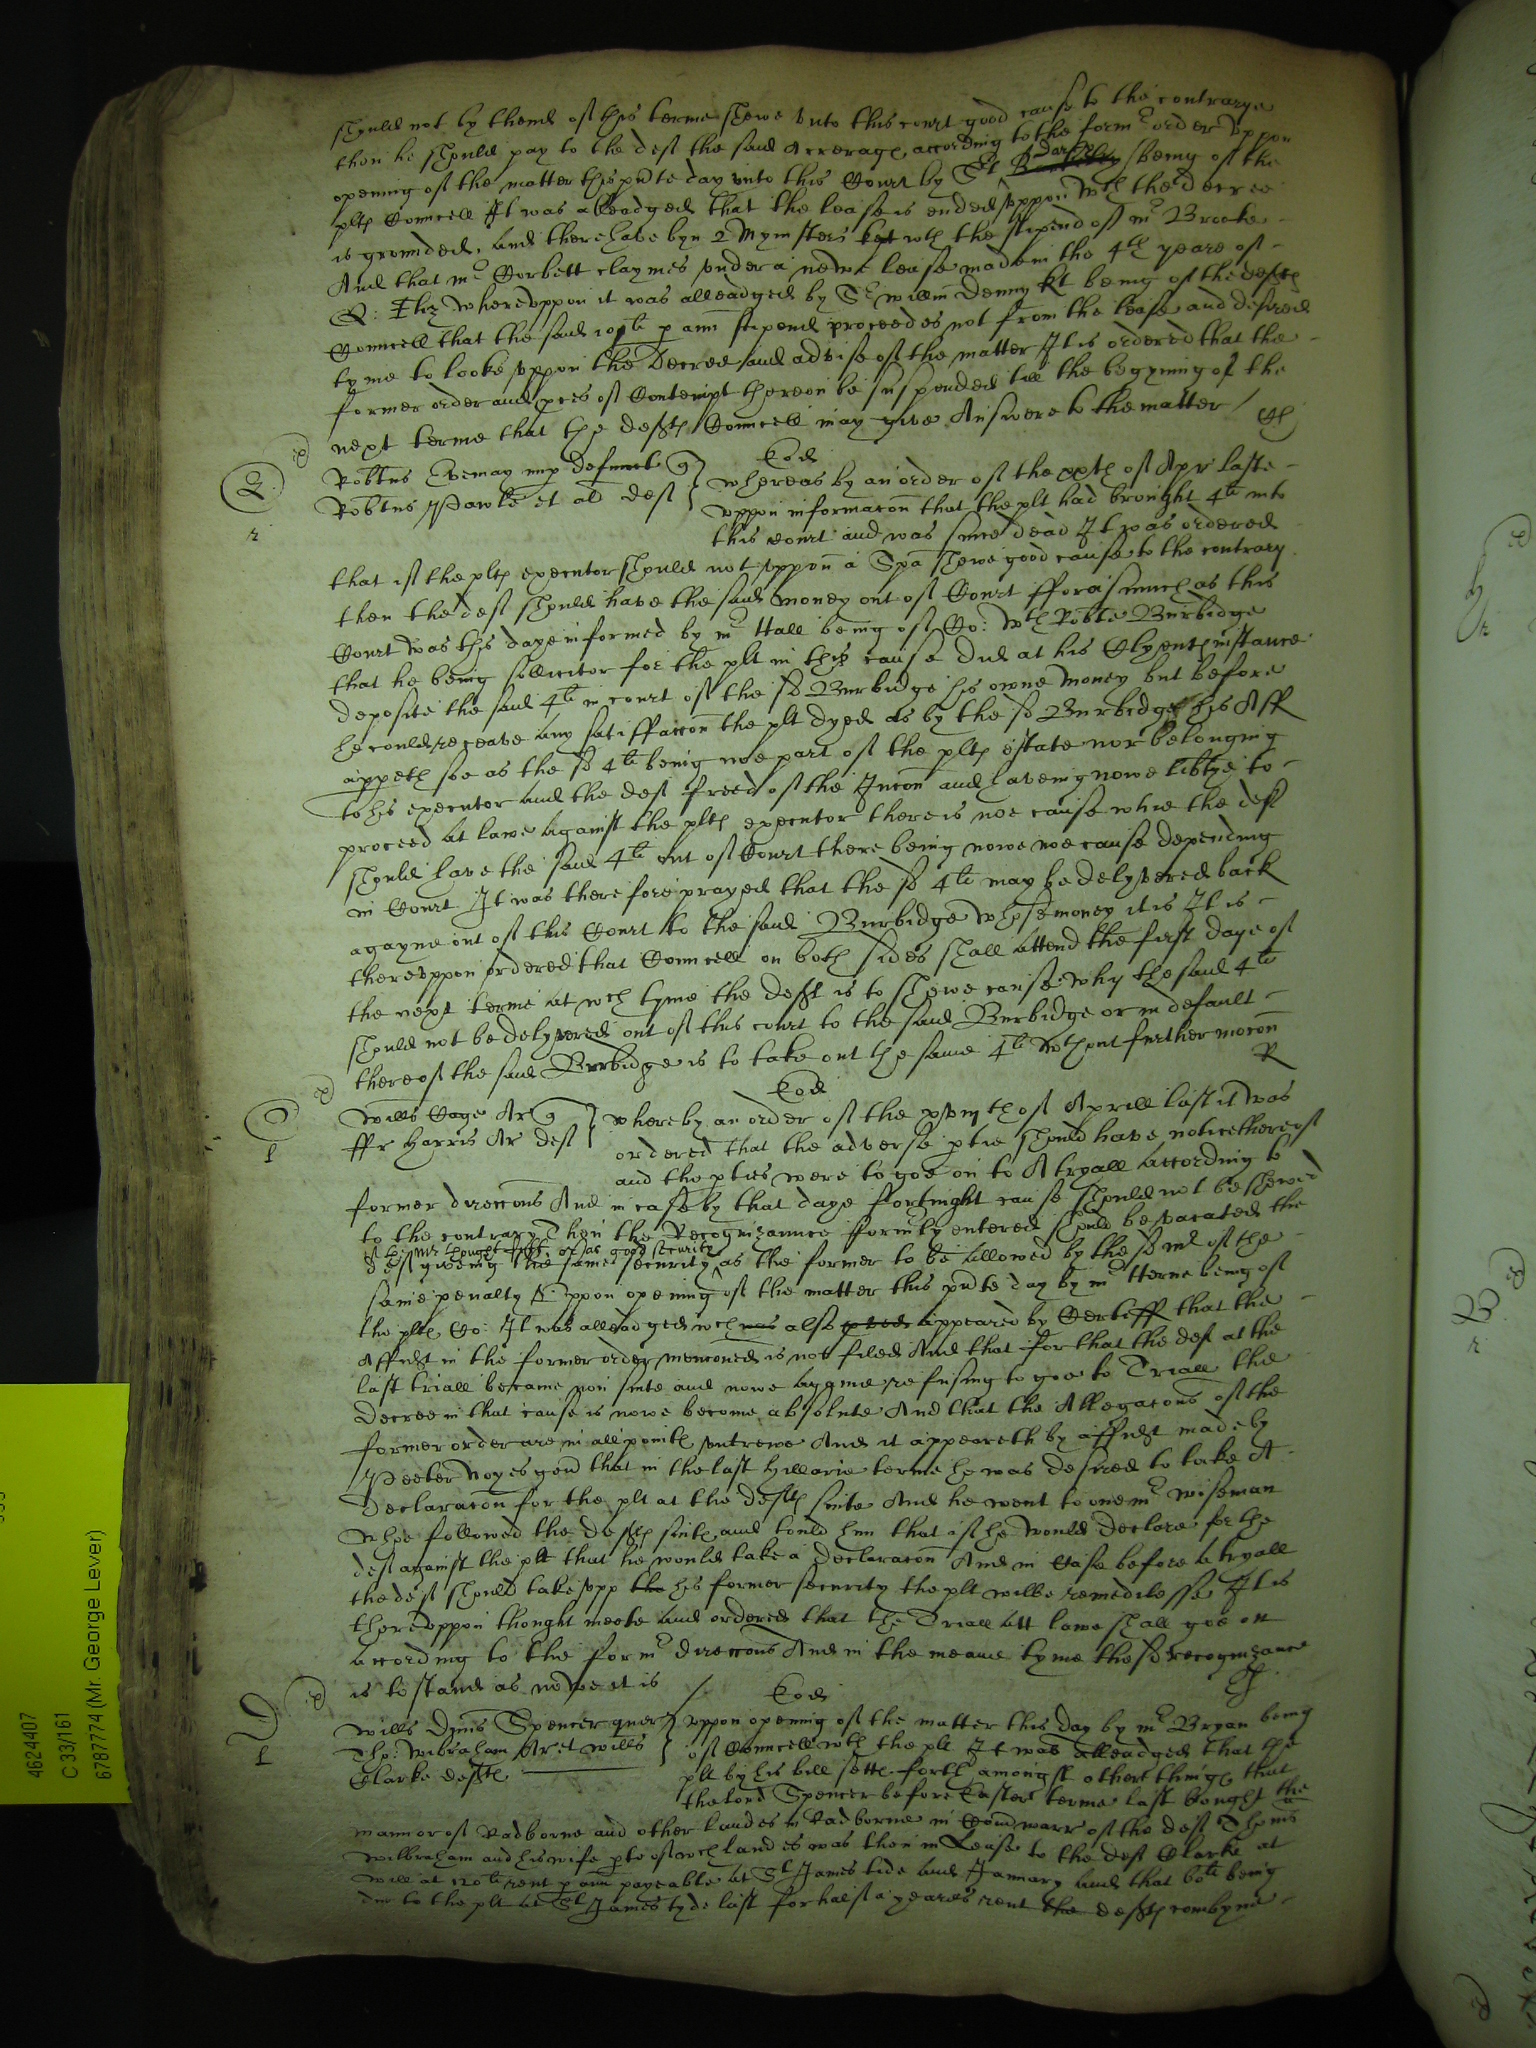 should not by thend of this terme shewe unto this court good cause to the contrarye
then he should pay to the deft the said Arrerag according to the form^r order uppon
opening of the matter this pnte day unto this Court by S^r being of the
plts Councell It was alleadged that the lease is ended uppon w^ch the decree
is grounded, and there have byn 2 Mynisters kept w^th the stipend of m^r Brooke
And that m^r Corbett claymes under a newe lease made in the 4^th yeare of
Q: Eliz whereuppon it was alleadged by S^r Willm Denny kt being of the defts
Councell that the said 10^li p ann stipend proceedes not from the lease and desired
tyme to looke uppon the Decree and advise of the matter It is ordered that the
former order and pces of Contempt thereon be suspended till the begyning of the
next terme that the defts Councell may give Answere to the matter /
Eod
Robtus imp defunct q
Robtus Pawle et al deft
whereas by an order of the xxth of Apr laste
uppon informacon that the plt had brought 4^li into
this court and was since dead It was ordered
that if the plts executor should not uppon a Spa shewe good cause to the contrary
then the deft should have the said money out of Court fforasmuch as this
Court was this daye informed by m^r Hall being of Co: w^th Robte Burbidge
that he being sollicitor for the plt in this cause did at his Clyents instance
deposite the said 4^li in court of the sd Burbidge his owne money but before
he could receave any satisffaccon the plt dyed as by the sd Burbidge his Aff
appeth soe as the sd 4^li being noe part of the plts estate nor belonging
to his executor and the deft freed of the Iniccon and haveing nowe libtye to
proceed at lawe against the plts executor there is noe cause whie the deft
should have the said 4^li out of Court there being nowe noe cause depending
in Court It was therefore prayed that the sd 4^li may be delyvered back
agayne out of this Court to the said Burbidge whose money it is It is
thereuppon ordered that Councell on both sides shall attend the first daye of
the next terme at w^ch tyme the deft is to shewe cause why the said 4^li
should not be delyvered out of this court to the said Burbidge or in default
thereof the said Burbidge is to take out the same 4^li w^thout further mocon
R
Eod
Wills Gage Ar q
ffr Harris Ar deft
where by an order of the xviijth of Aprill last it was
ordered that the adverse ptie should have notice thereof
and the pties were to goe on to A tryall according to
former direccons And in case by that daye fortnight cause should not be shewed
to the contrary then the Recognizaunce form^rly entered should be vacated the
if this m^r thought fitt, or as good security
deft giveing the same security as the former to be allowed by the sd m^r of the
same penalty Uppon opening of the matter this pnte day by m^r Herne being of
the plts Co: It was alleadged w^ch was also appeared by Certiff that the
Affidt in the former order menconed is not filed And that for that the deft at the
last triall became non suite and nowe agayne refusing to goe to Triall the
decree in that cause is nowe become absolute And that the Allegacons of the
former order are in all points untrewe And it appeareth by affidt made by
Peeter Noyes gent that in the last Hillarie terme he was desired to take A
Declaracon for the plt at the defts suite And he went to one m^r Wiseman
whoe followed the defts suite and tould him that if he would declare for the
deft against the plt that he would take a declaracon And in Case before a tryall
the deft should take upp the his former security the plt wilbe remedilesse It is
thereuppon thought meete and ordered that the Triall att lawe shall goe on
according to the form^r direccons And in the meane tyme the sd recognizance
is to stand as nowe it is /
Eod
Wills Dnus Spencer quer
Tho: Wibraham Ar et Wills
Clarke defts
uppon opening of the matter this day by m^r Bryan being
of Councell w^th the plt It was alleadged that the
plt by his bill setts forth amongst other things, that
the lord Spencer before Easter terme last bought the
mannor of Radborne and other landes in Radborne in Com warr of the deft Thoms
Wilbraham and his wife pte of w^ch landes was then in Lease to the deft Clarke at
will at 120^li rent p ann payeable at S^t James tide and January and that 60^li being
due to the plt at S^t James tyde last for halfe a yeares rent the defts combyne
4624407
C 33/161
6787774 (Mr. George Lever)